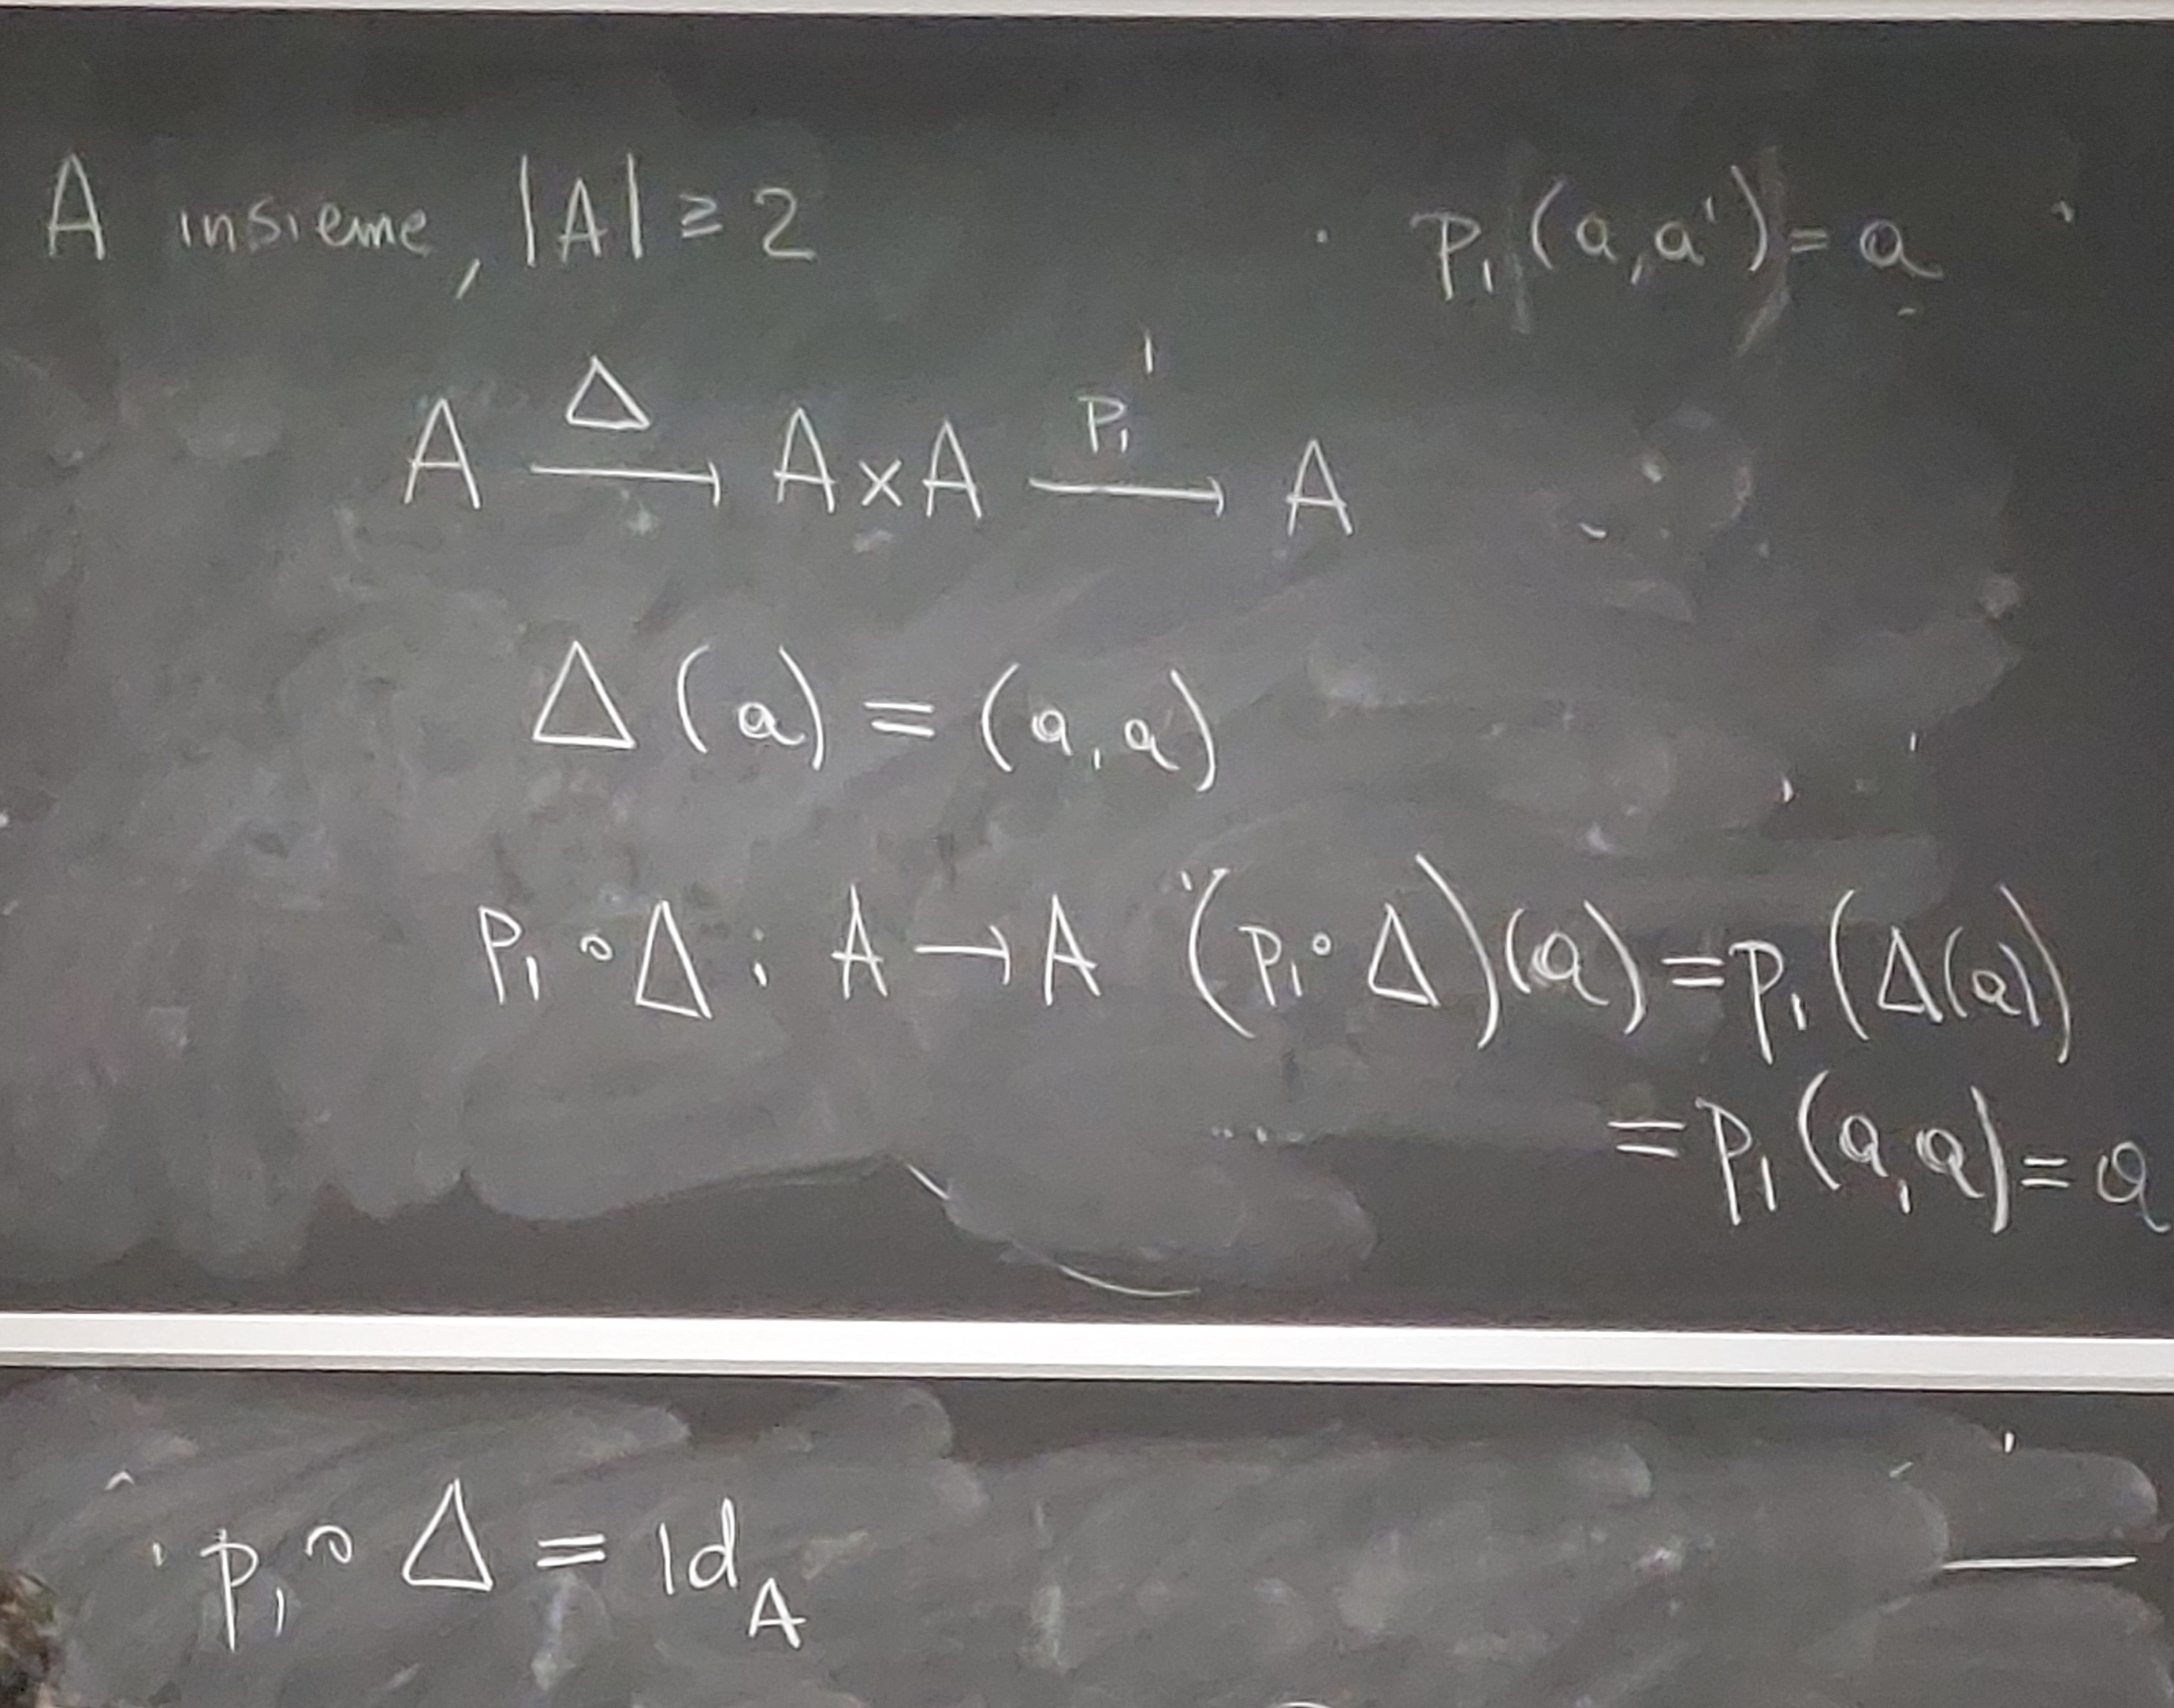 A insieme, |A| ≥ 2
p₁(a,a') = a
A →^Δ A×A →^p₁ A
Δ(a) = (a,a)
p₁∘Δ : A → A (p₁∘Δ)(a) = p₁(Δ(a))
= p₁(a,a) = a
p₁∘Δ = Id_A